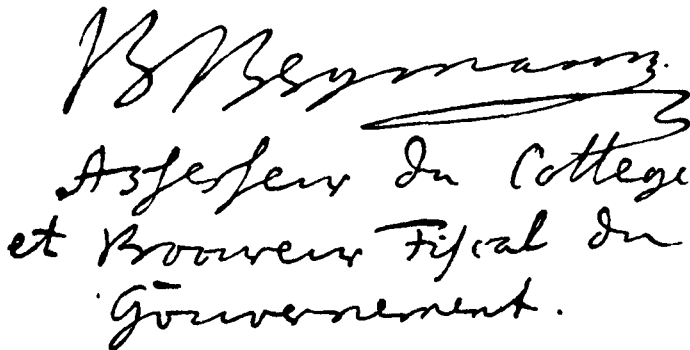 B Begmann
Assesseur du College
et Procureur Fiscal du
Gouvernement.